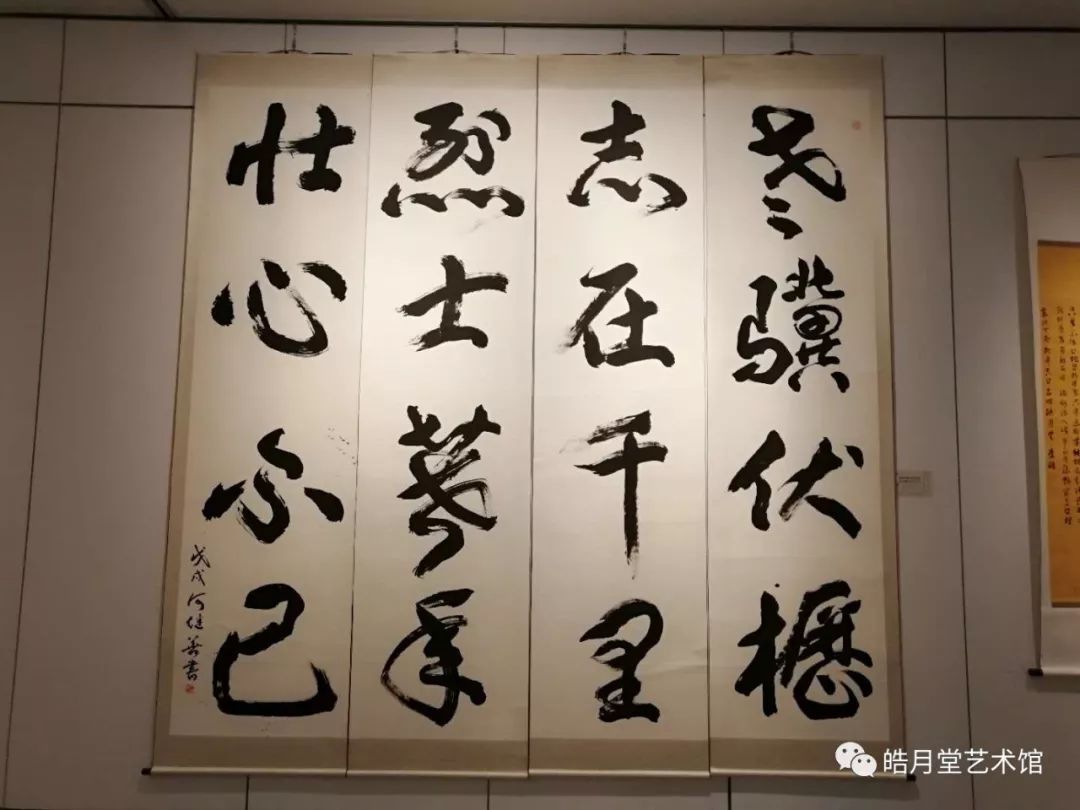 老骥伏櫪
志在千里
烈士暮年
壮心不已
戊戌何继善書
皓月堂艺术馆